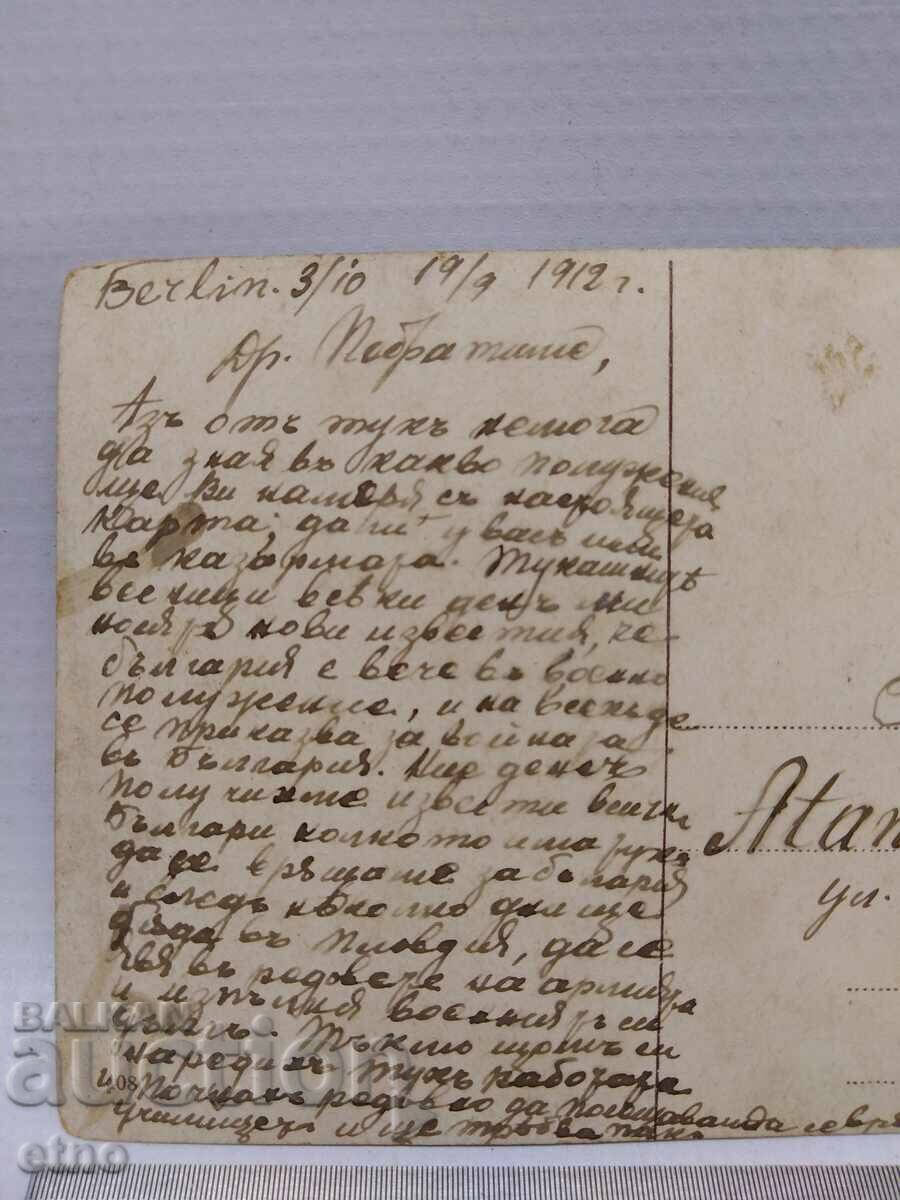 Berlin. 3/10 19/9 1912 г.
Др. Побратиме,
Азъ отъ тукъ немога
да зная въ какво положение
ще Ви намѣри съ настоящата
карта; дали у васъ или
въ казармата. Тукашнитѣ
весници всѣки день ни
нови известия, че
България е вече въ военно
положение, и на всекъде
се приказва за войната
въ България. Ние денесъ
получихме извести всички
Българи колкото има тука
да се връщаме за България
и следъ неколко дни ще
бъда въ Пловдия, да се
явя въ редовете на армията
и изпълня военния си
дългъ. Тъкмо щомъ си
наредихъ тукъ работата
и почнахъ редовно да посещавамъ
училището и ще трѣбва пакъ да се връ
Atan
ул.
408
BALKAN
auction
etno